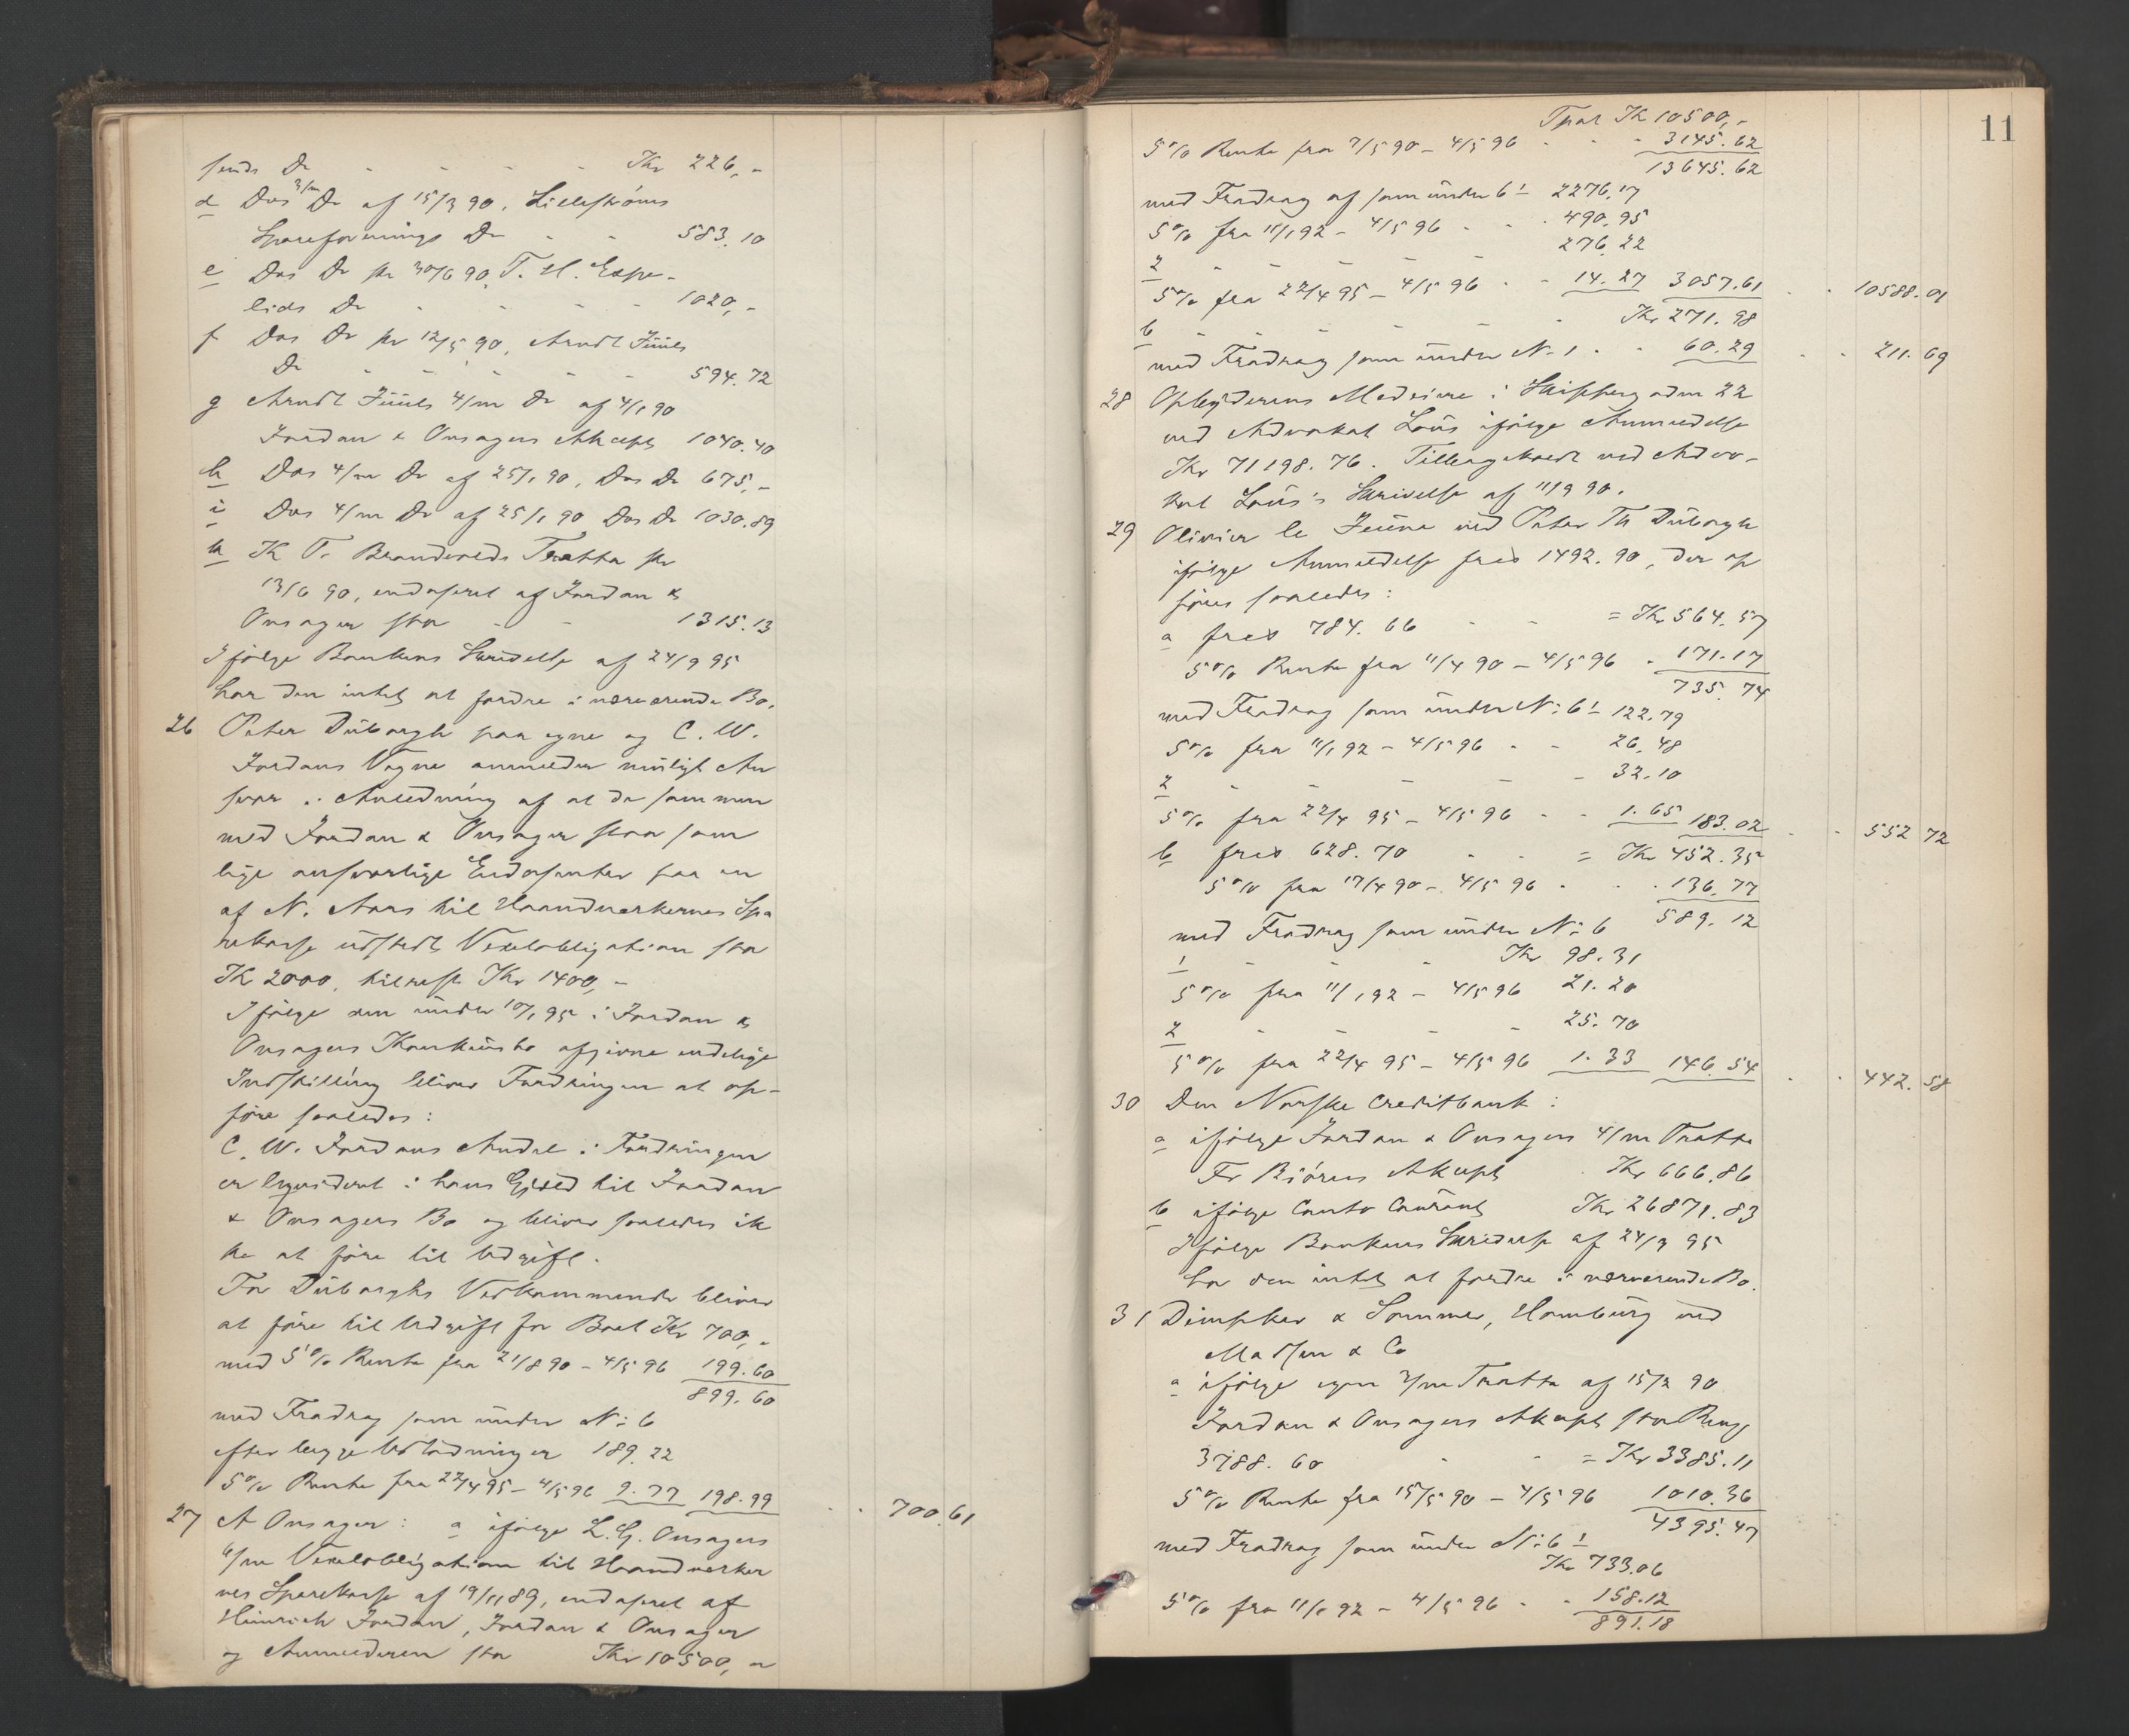 sends Do - - - - - Kr 226,-
d Das 3/m Do af 15/3 90, Lillestrøms
Spareforenings Do - - 583.10
e Das Do pr 30/6 90, T. H. Espe-
lids Do - - - - 1020,-
f Das Do pr 12/5 90, Arndt Juuls
Do - - - - - 594.72
g Arndt Juuls 4/m Do af 4/1 90
Jordan & Onsagers Akcept 1040.40
h Das 4/m Do af 25/1 90, Das Do 675,-
i Das 4/m Do af 25/1 90 Das Do 1030.89
k K T. Brandvolds Tratta pr
13/6 90, endoseret af Jordan &
Onsager stor - - 1315.13
Ifølge Bankens Skrivelse af 24/9 95
har den intet at fordre i nærværende Bo.
26 Peter Duborgh paa egne og C. W.
Jordans Vegne anmelder muligt An
svar i Anledning af at de sammen
med Jordan & Onsager staar som
lige ansvarlige Endosenter paa en
af N. Aars til Haandverkernes Spa
rekasse udstedt Vexelobligation stor
Kr 2000, tilrest Kr 1400,-
Ifølge den under 10/1 95 i Jordan &
Onsagers Konkursbo afgivne endelige
Indstilling bliver Fordringen at op-
føre saaledes:
C. W. Jordans Andel i Fordringen
er liquideret i hans Gjæld til Jordan
& Onsagers Bo og bliver saaledes ik
ke at føre til Udgift.
For Duborghs Vedkommende bliver
at føre til Udgift for Boet Kr 700,-
med 5% Rente fra 21/8 90 - 4/5 96 199.60
899.60
med Fradrag som under No 6
efter begge Udlodninger 189.22
5% Rente fra 22/4 95 - 4/5 96 9.77 198.99 - - 700.61
27 A Onsager: a ifølge L. G. Onsagers
6/m Vexelobligation til Haandverker
nes Sparekasse af 19/11 89, endoseret af
Heinrich Jordan, Jordan & Onsager
og Anmelderen stor Kr 10500,-
11
Tpat Kr 10500,-
5% Rente fra 7/5 90 - 4/5 96 - - - 3145.62
13645.62
med Fradrag af som under 6 1 2276.17
5% fra 11/1 92 - 4/5 96 - - - 490.95
2 - - - - - 276.22
5% fra 22/4 95 - 4/5 96 - - 14.27 3057.61 - - 10588.01
b - - - - - Kr 271.98
med Fradrag som under No 1 - - 60.29 - - 211.69
28 Opbyderens Medeiere i Skibsberg adm 22
ved Advokat Lous ifølge Anmeldelse
Kr 71198.76. Tilbagekaldt ved Advo-
kat Lous's Skrivelse af 11/9 90.
29 Olivier le Jeune ved Peter Th Duborgh
ifølge Anmeldelse frcs 1492.90, der op
føres saaledes:
a frcs 784.66 - - = Kr 564.57
5% Rente fra 11/4 90 - 4/5 96 - 171.17
735.74
med Fradrag som under No 6 1 122.79
5% fra 11/1 92 - 4/5 96 - - 26.48
2 - - - - - 32.10
5% fra 22/4 95 - 4/5 96 - - 1.65 183.02 - - 552 72
b frcs 628.70 - - = Kr 452.35
5% fra 17/4 90 - 4/5 96 - - - 136.77
589.12
med Fradrag som under No 6
1 - - - Kr 98.31
5% fra 11/1 92 - 4/5 96 21.20
2 - - - - 25.70
5% fra 22/4 95 - 4/5 96 1.33 146.54 - - 442.58
30 Den Norske Creditbank:
a ifølge Jordan & Onsagers 4/m Tratta
Fr Bjørns Akcept - Kr 666.86
b ifølge Conto Courant Kr 26871.83
Ifølge Bankens Skrivelse af 24/9 95
har den intet at fordre i nærværende Bo.
31 Dimpker & Sommer, Hamburg ved
Madsen & Co
a ifølge egen 3/m Tratta af 15/2 90
Jordan & Onsagers Akcept stor Rmg
3788.60 - - = Kr 3385.11
5% Rente fra 15/5 90 - 4/5 96 1010.36
4395.47
med Fradrag som under No 6 1
Kr 733.06
5% fra 11/1 92 - 4/5 96 - - 158.12
891.18